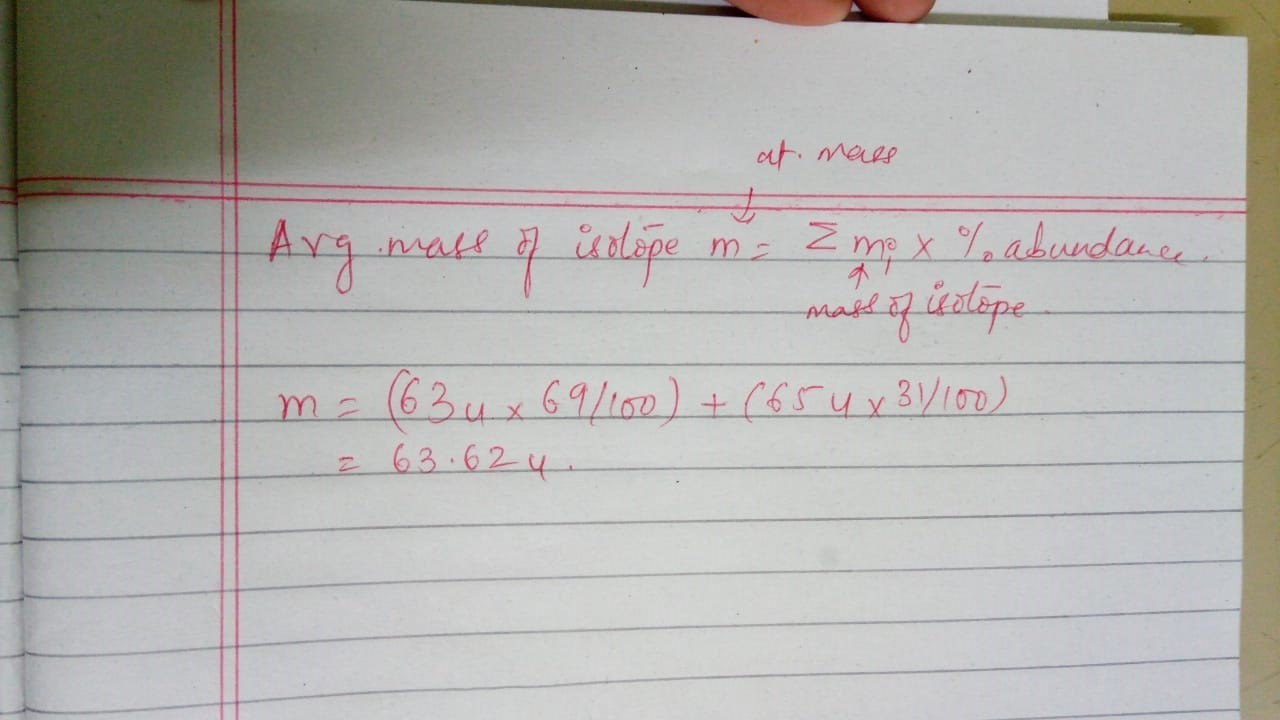 at. mass
↓
Avg. mass of isotope m = Σ mᵢ × % abundance.
↑
mass of isotope.
m = (63u × 69/100) + (65u × 31/100)
= 63.62u.